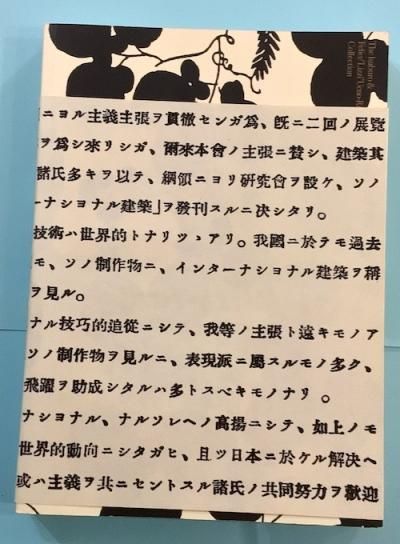 ニヨル主義主張ヲ貫徹センガ爲、旣ニ二回ノ展覽
ヲ爲シ來リシガ、爾來本會ノ主張ニ贊シ、建築其
諸氏多キヲ以テ、綱領ニヨリ硏究會ヲ設ケ、ソノ
ーナショナル建築」ヲ發刊スルニ決シタリ。
技術ハ世界的トナリツヽアリ。我國ニ於テモ過去
モ、ソノ制作物ニ、インターナショナル建築ヲ稱
ヲ見ル。
ナル技巧的追從ニシテ、我等ノ主張ト遠キモノア
ソノ制作物ヲ見ルニ、表現派ニ屬スルモノ多ク、
飛躍ヲ助成シタルハ多トスベキモノナリ 。
ナショナル、ナルソレヘノ高揚ニシテ、如上ノモ
世界的動向ニシタガヒ、且ツ日本ニ於ケル解决ヘ
或ハ主義ヲ共ニセントスル諸氏ノ共同努力ヲ歡迎
Collection